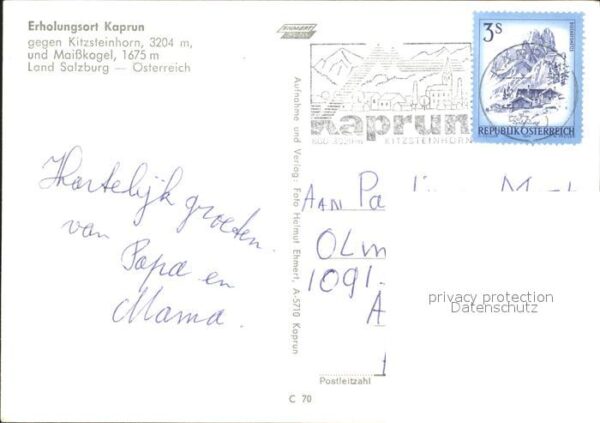 Erholungsort Kaprun
gegen Kitzsteinhorn, 3204 m,
und Maißkogel, 1675 m
Land Salzburg — Österreich
EHMERT
3S
REPUBLIK ÖSTERREICH
Kaprun
KITZSTEINHORN
Aufnahme und Verlag: Foto Helmut Ehmert, A-5710 Kaprun
Hartelijk groeten
van
Papa en
Mama.
AAN Pa
OLM
1091
A
privacy protection
Datenschutz
Postleitzahl
C 70